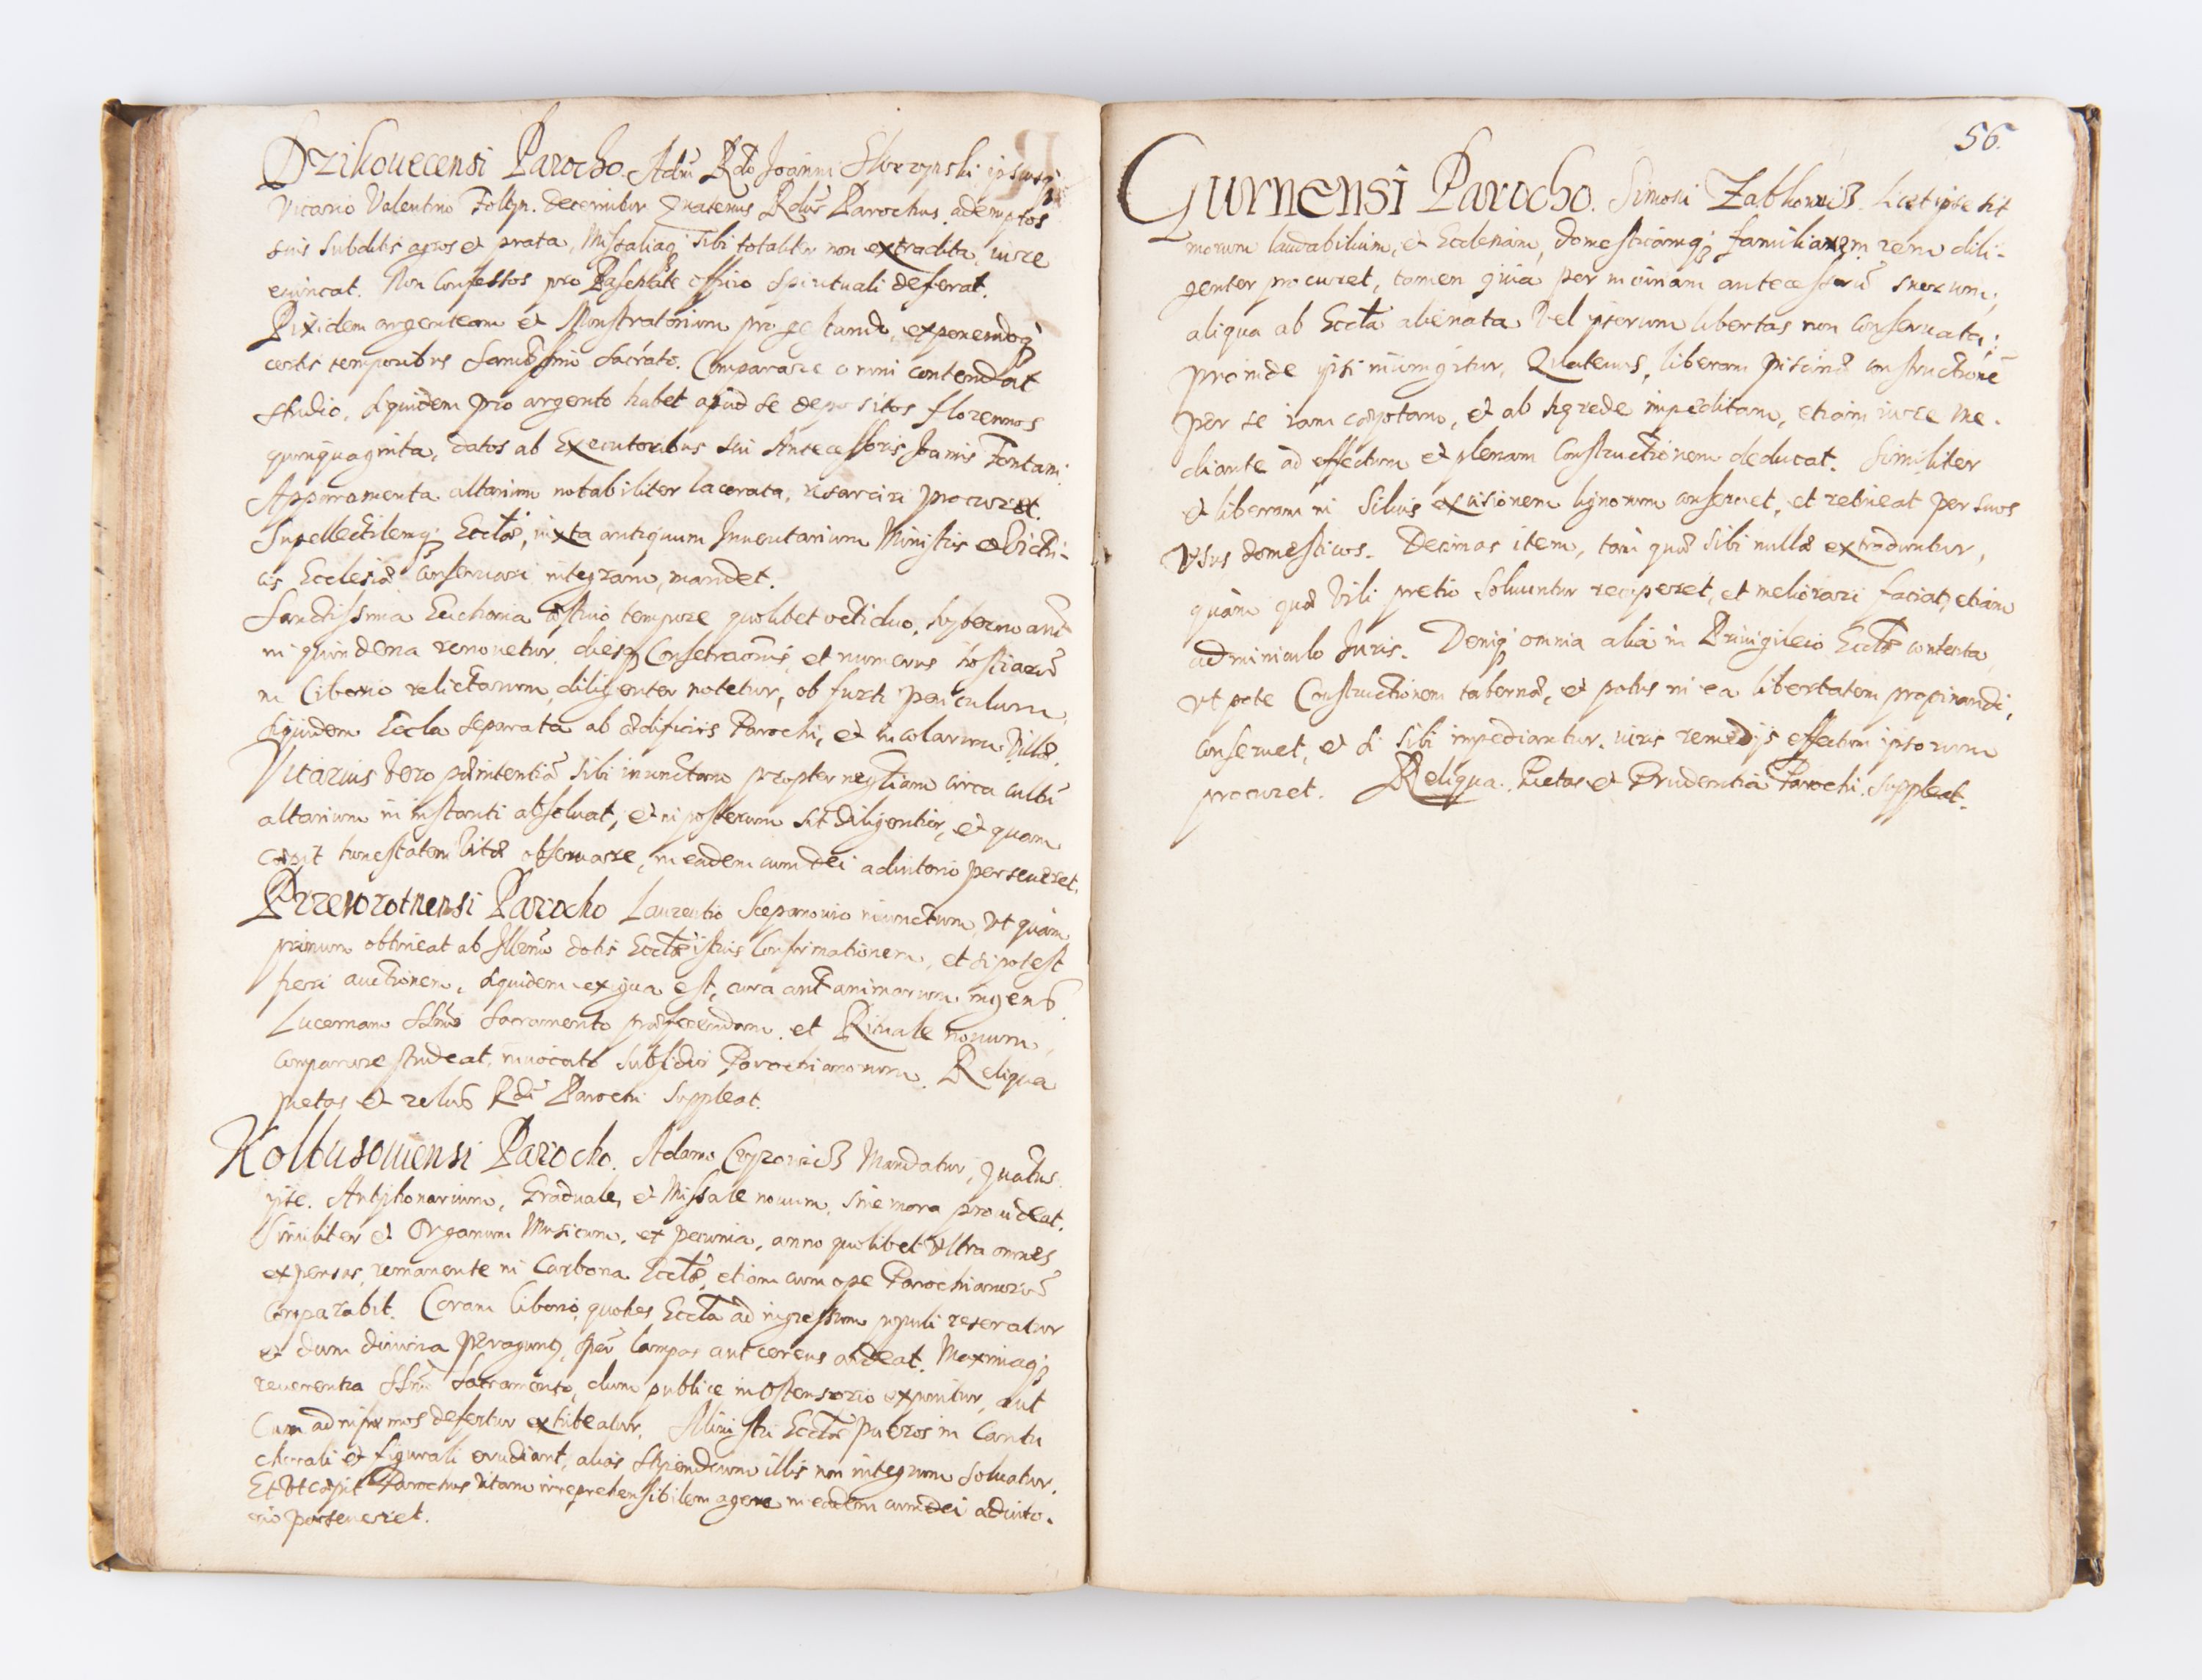 Dzikouecensi Parocho. Adm̃ Rd̃o Joanni Skorzynski ipsiusq;
Vicario Valentino Foltyn. decernitur Quatenus Rdus Parochus ademptos
suis subditis agros et prata, Missaliaq; sibi totaliter non extradita, iure
euincat. Non Confessos pro Paschate officio Spirituali deferat.
Pixidem argenteam et Monstratorium pro gestando, exponendoq;
certis temporibus Sanctissimo Sacrato. Comparare omni contendat
studio, siquidem pro argento habet apud se depositos florenos
quinquaginta, datos ab Executoribus sui Antecessoris Joannis Fontani.
Apparamenta altarium notabiliter lacerata, resarciri procuret.
Supellectilemq; Eccłæ, iuxta antiquum Inuentarium Ministris
cis Ecclesiæ conseruari integram, mandet.
Sanctissima Eucharia æstiuo tempore quolibet octiduo, hyberno aut̃
in quindena renouetur, diesq; Consecraõnis, et numerus hostiarũ
in Ciborio relictarum, diligenter notetur, ob furti periculum,
siquidem Eccła separata ab ædificiis Parochi, et incolarum Villæ.
Vicarius vero pænitentiã sibi iniunctam propter negłiam circa cultũ
altarium in instanti absoluat, et in posterum sit diligentior, et quam
cæpit honestatem vitæ obseruare, in eadem cum dei adiutorio perseueret.
Przeworotnensi Parocho Laurentio Sceponouio iniunctum, Vt quam
primum obtineat ab Illmo dotis Eccłæ istius Confirmationem, et si potest
fieri auctionem, siquidem exigua est, cura aut̃ animarum ingens.
Lucernam SSmo Sacramento præferendam, et Rituale nouum,
comparare studeat, inuocato subsidio Parochianorum. Reliqua
pietas et zelus Rdi Parochi suppleat.
Kolbusouiensi Parocho. Adamo Mandatur, quatus
ipse. Antiphonarium, Graduale, et Missale nouum, sine mora prouideat.
Similiter et Organum Musicum, ex pecunia, anno quolibet Vltra omnes
expensas, remanente in Carbona Eccłæ, etiam cum ope Parochianorũ
comparabit. Coram Ciborio, quoties Eccła ad ingressum populi reseratur
et dum diuina peraguntʒ, lampas aut cereus ardeat. Maximaq;
reuerentia SSmo Sacramento, dum publice in Ostensorio exponitur, aut
Cum ad infirmos defertur exhibeatur. Ministri Eccłæ pueros in Cantu
chorali et figurali erudiant, alias stipendium illis non integrum soluatur.
Et Vt cæpit Parochus vitam irreprehensibilem agere in eadem cum dei adiuto-
rio perseueret.
56.
Gurnensi Parocho. Simoni Zabłouicʒ. Licet ipse sit
morum laudabilium, et Ecclesiam, domesticamq; familiarem rem dili-
genter procuret, tamen quia per incuriam antecessorũ suorum,
aliqua ab Eccła alienata Vel ipsorum libertas non conseruata;
proinde ipsi iniungitur, Quatenus, liberam piscinæ constructionẽ
per se iam cæptam, et ab hærede impeditam, etiam iure me-
diante ad effectum et plenam Constructionem deducat. Similiter
et liberam in siluis excisionem lignorum conseruet, et retineat per suos
Vsus domesticos. Decimas item, tam quæ sibi nullæ extraduntur,
quam quæ Vili pretio soluuntur recuperet, et meliorari faciat, etiam
adminiculo Juris. Deniq; omnia alia in Priuigileio Eccłæ contenta,
vt pote Constructionem tabernæ, et potus in ea libertatem propinandi,
conseruet, et si sibi impediantur, iuris remedijs effectum ipsorum
procuret. Reliqua Pietas et Prudentia Parochi, suppleat.